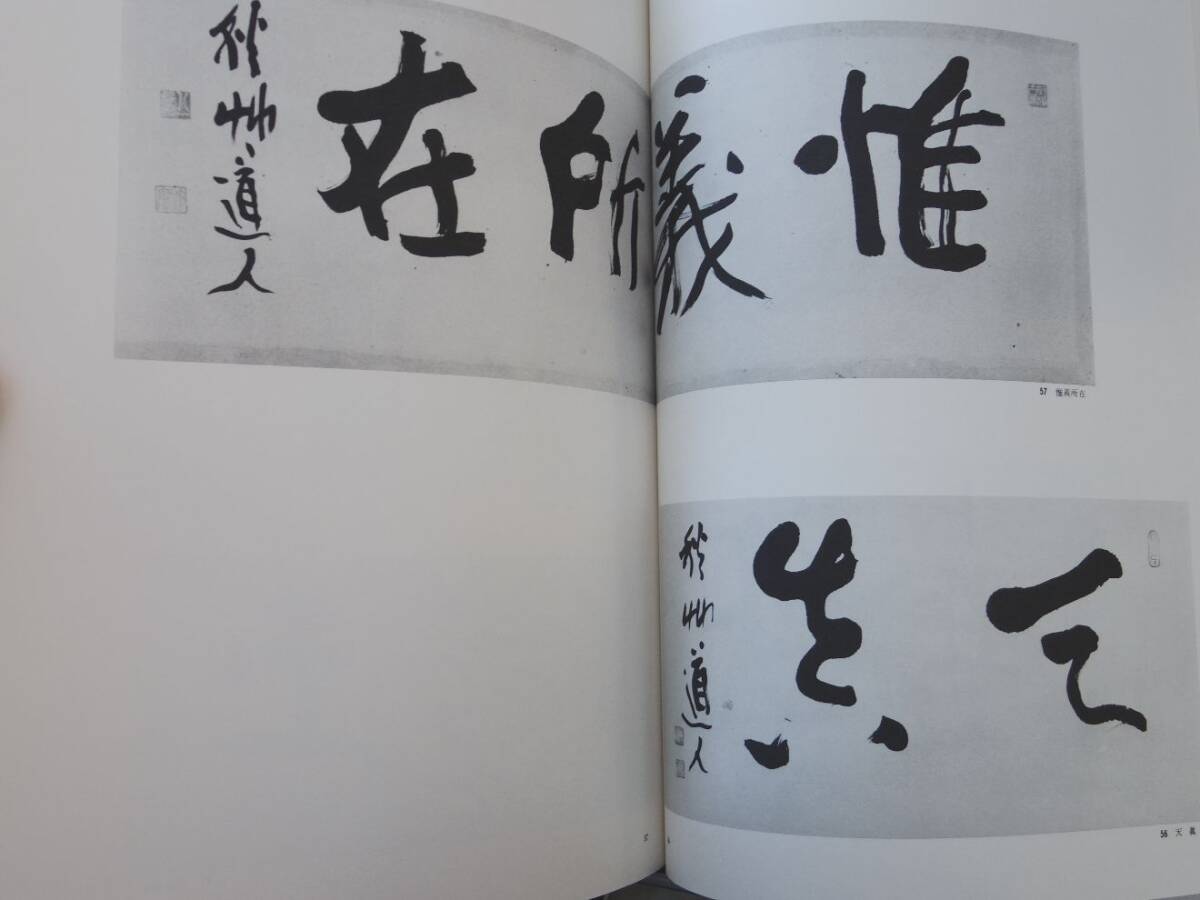 惟義所在
秋艸道人
57 惟義所在
天真
秋艸道人
56 天真